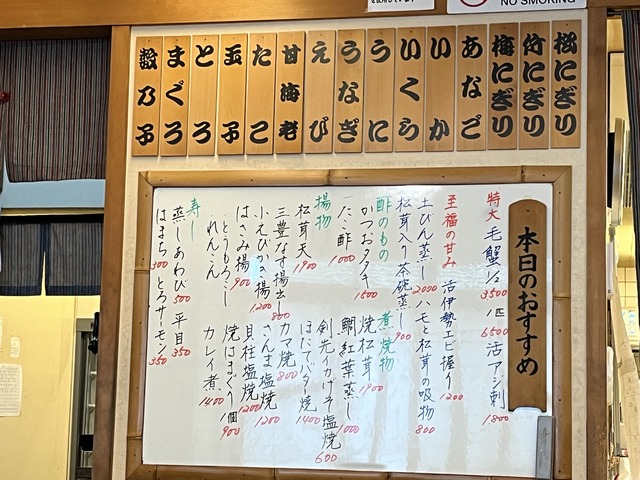 NO SMOKING
松にぎり
竹にぎり
梅にぎり
あなご
いか
いくら
うに
うなぎ
えび
甘海老
たこ
玉子
とろ
まぐろ
数乃子
本日のおすすめ
特大 毛蟹1/2 3500 1匹 6500 活アジ刺 1800
至福の甘み 活伊勢エビ握り 1200
土びん蒸し 2000 ハモと松茸の吸物 800
松茸入り茶碗蒸し 900
酢のもの
かつおタタキ 1500
たこ酢 1000
煮焼物
焼松茸 1900
鯛紅葉蒸し 1000
剣先イカゲソ塩焼 600
ほたてバター焼 1400
カマ焼 800
さんま塩焼 1200
貝柱塩焼 1200
焼はまぐり 1個 900
カレイ煮 1400
揚物
松茸天 1900
三豊なす揚出し 800
小えびかき揚 1200
はさみ揚 900
とうもろこし
れんこん
寿し
蒸しあわび 500 平目 350
はまち 300 とろサーモン 350